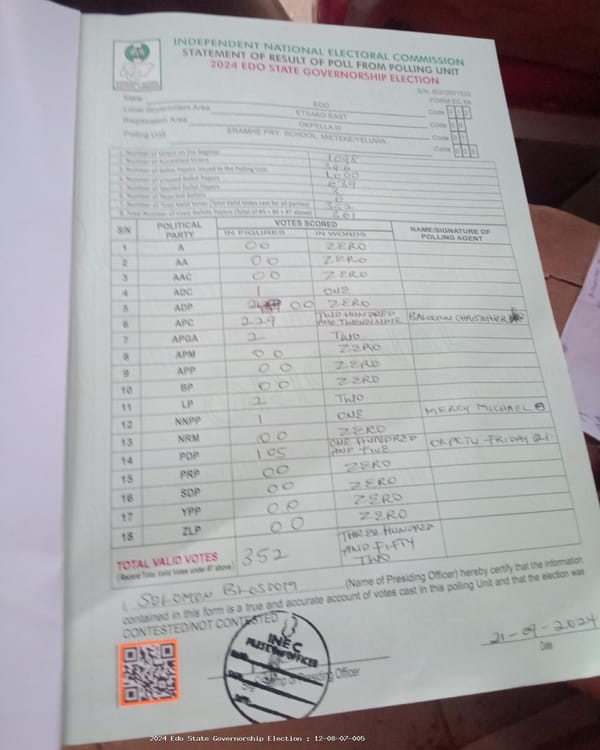 INDEPENDENT NATIONAL ELECTORAL COMMISSION
STATEMENT OF RESULT OF POLL FROM POLLING UNIT
2024 EDO STATE GOVERNORSHIP ELECTION
FORM EC 8A
State EDO Code
Local Government Area ETSAKO EAST Code
Registration Area OKPELLA III Code
Polling Unit ERAMHE PRY. SCHOOL, MIETEKE/YELUWA Code
1. Number of Voters on the Register 1098
2. Number of Accredited Voters
3. Number of Ballot Papers Issued to the Polling Unit 1000
4. Number of Unused Ballot Papers 639
5. Number of Spoiled Ballot Papers
6. Number of Rejected Ballots
7. Number of Total Valid Votes (Total Valid Votes cast for all parties) 352
8. Total Number of Used Ballots Papers (Total of #5 + #6 + #7 above) 361
S/N POLITICAL PARTY VOTES SCORED NAME/SIGNATURE OF POLLING AGENT
IN FIGURES IN WORDS
1 A 00 ZERO
2 AA 00 ZERO
3 AAC 00 ZERO
4 ADC 1 ONE
5 ADP 00 ZERO
6 APC 229 TWO HUNDRED AND TWENTY NINE
7 APGA 2 TWO
8 APM 00 ZERO
9 APP 00 ZERO
10 BP 00 ZERO
11 LP 2 TWO
12 NNPP 1 ONE MERCY MICHAEL
13 NRM 00 ZERO
14 PDP 105 ONE HUNDRED AND FIVE OKPETU FRIDAY
15 PRP 00 ZERO
16 SDP 00 ZERO
17 YPP 00 ZERO
18 ZLP 00 ZERO
TOTAL VALID VOTES 352 THREE HUNDRED AND FIFTY TWO
(Record Total Valid Votes under #7 above)
I, SOLOMON (Name of Presiding Officer) hereby certify that the information
contained in this form is a true and accurate account of votes cast in this polling Unit and that the election was
CONTESTED/NOT CONTESTED
INEC
PRESIDING OFFICER
Presiding Officer
21-09-2024
Date
2024 Edo State Governorship Election : 12-08-07-005